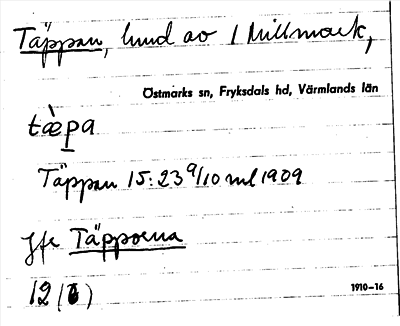 Täppan, hmd av 1 Millmark,
Östmarks sn, Fryksdals hd, Värmlands län
tæ̀pa
Täppan 15:23 9/10 ml 1909
Jfr Täpporna
12 (6)
1910–16